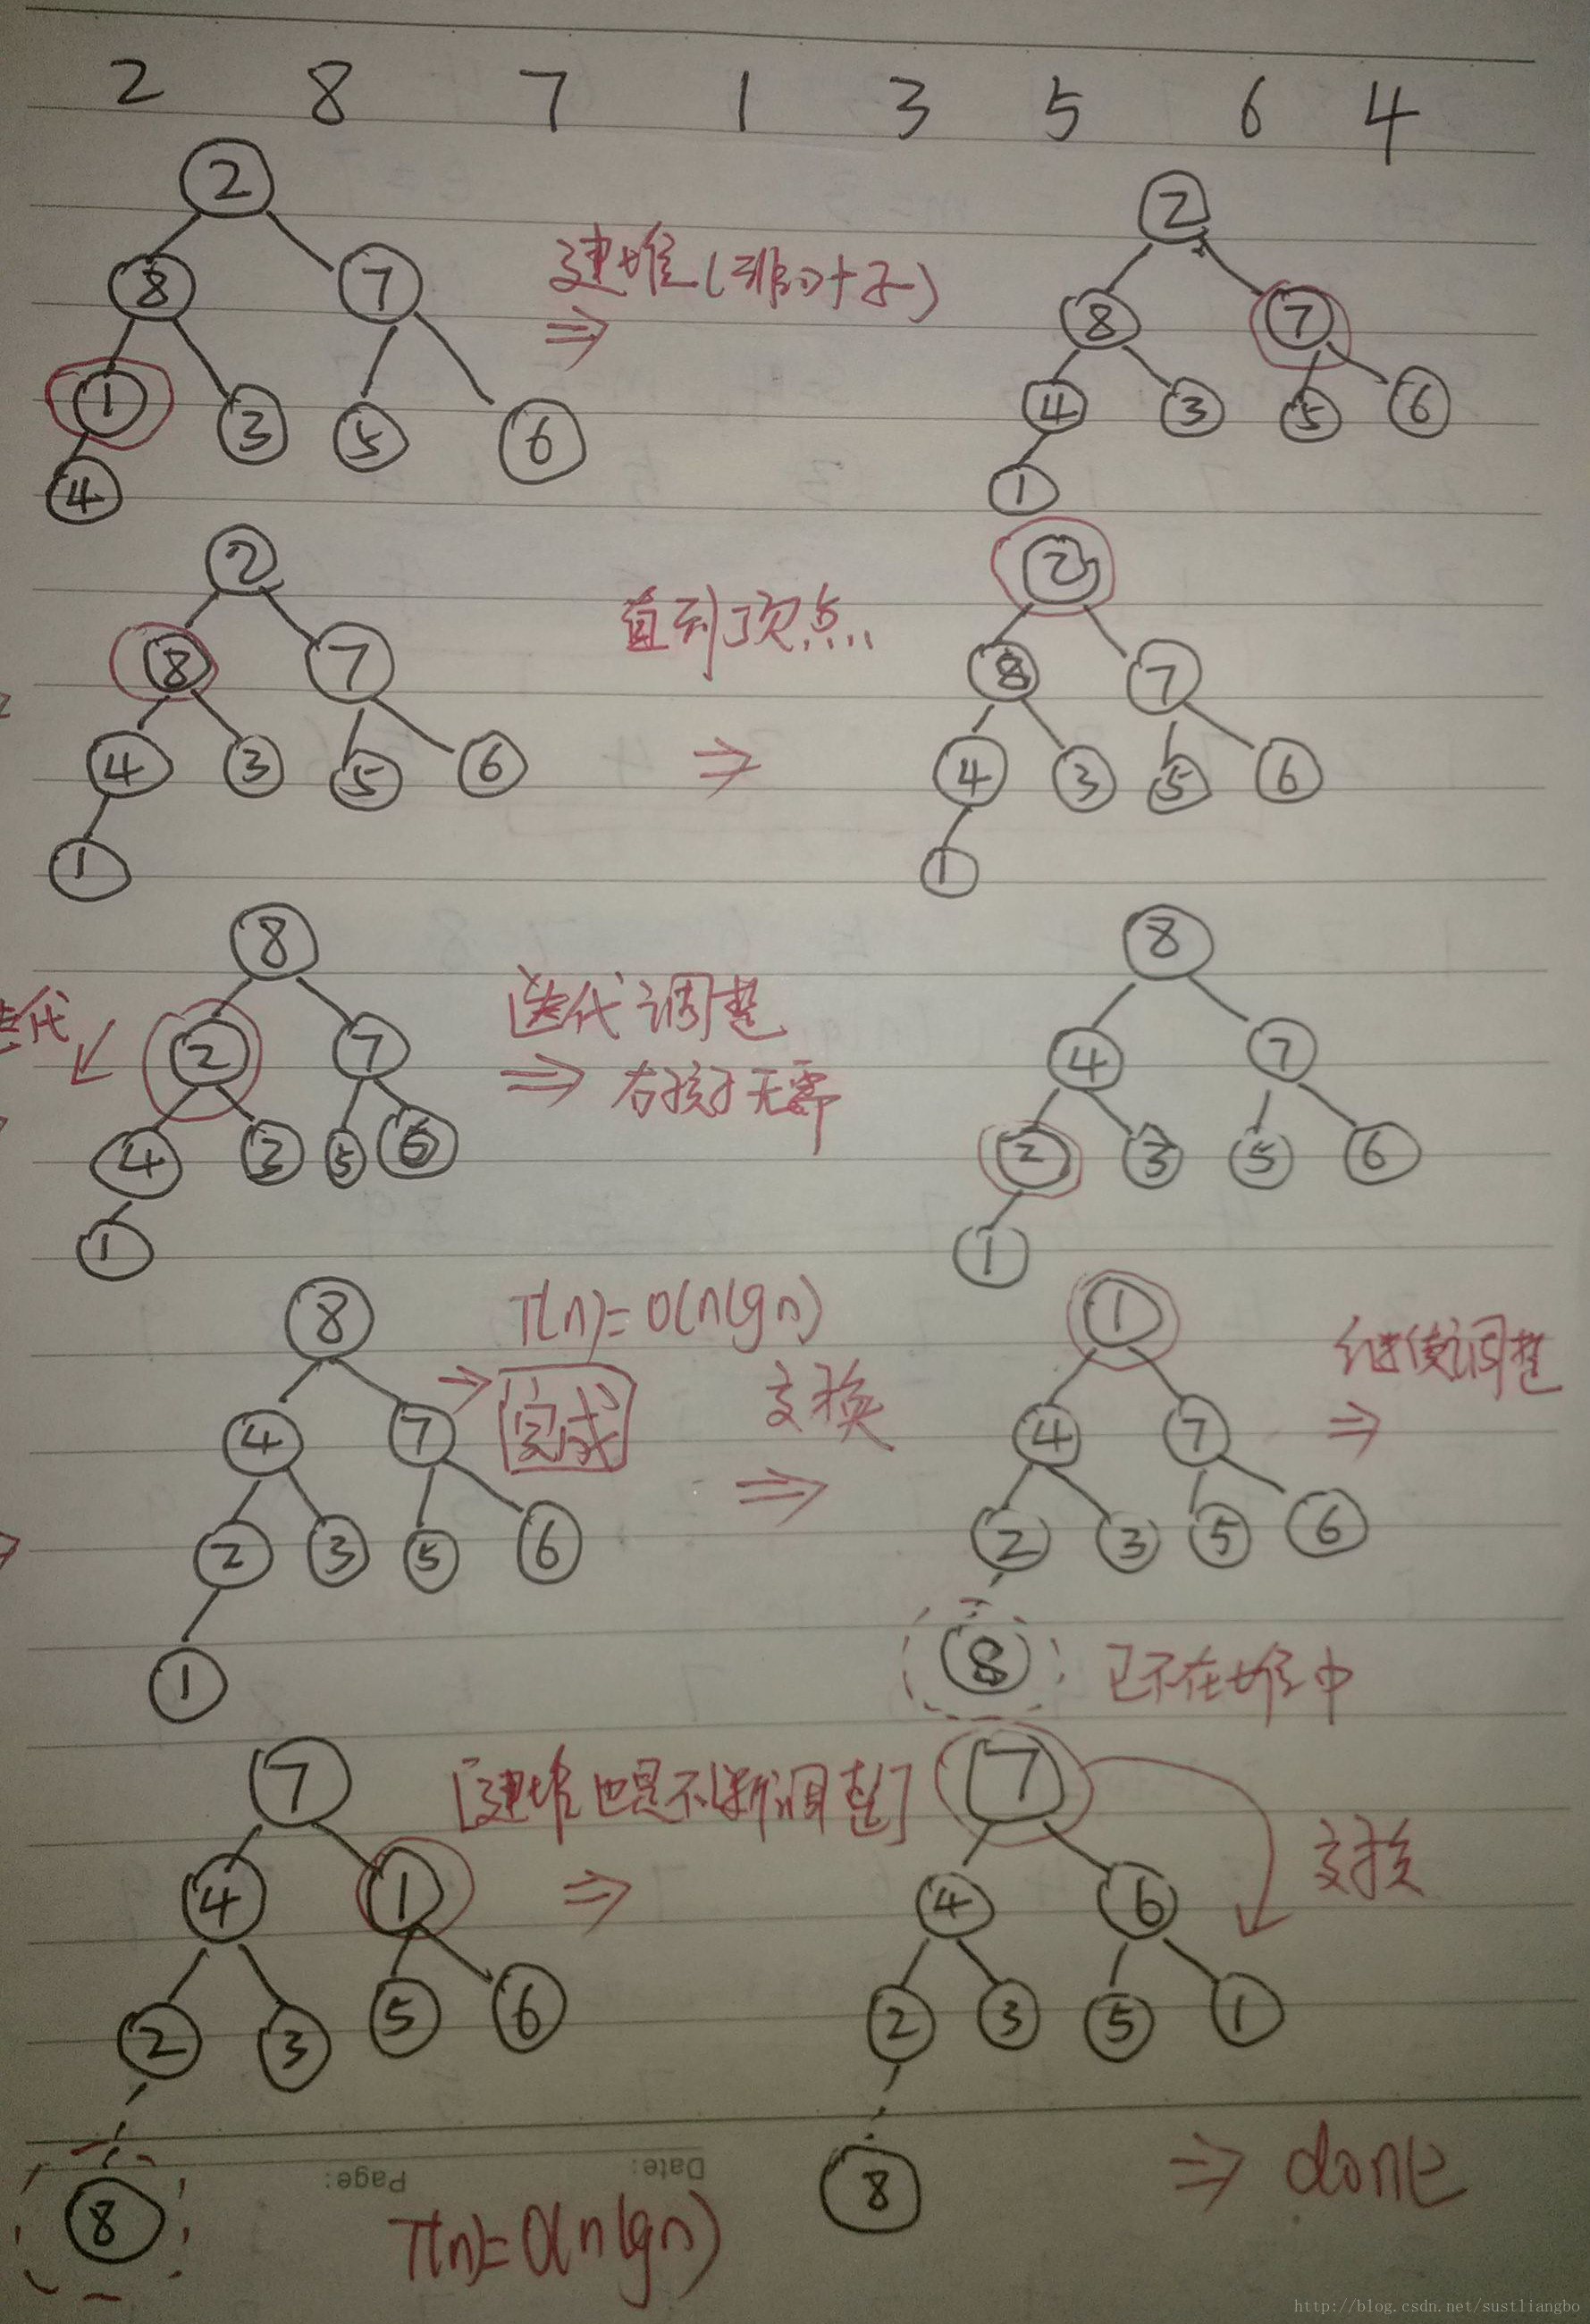 2 8 7 1 3 5 6 4
2
8 7
1 3 5 6
4
建堆(非叶子)
⇒
2
8 7
4 3 5 6
1
2
8 7
4 3 5 6
1
直到顶点...
⇒
2
8 7
4 3 5 6
1
迭代
8
2 7
4 3 5 6
1
迭代调整
⇒ 右孩子无需
8
4 7
2 3 5 6
1
8
4 7
2 3 5 6
1
T(n)=O(nlgn)
完成
交换
⇒
1
4 7
2 3 5 6
8 已不在堆中
继续调整
⇒
7
4 1
2 3 5 6
8
[建堆也是不断调整]
⇒
7
4 6
2 3 5 1
8
交换
⇒ done
Date:
Page:
T(n)=O(nlgn)
http://blog.csdn.net/sustliangbo